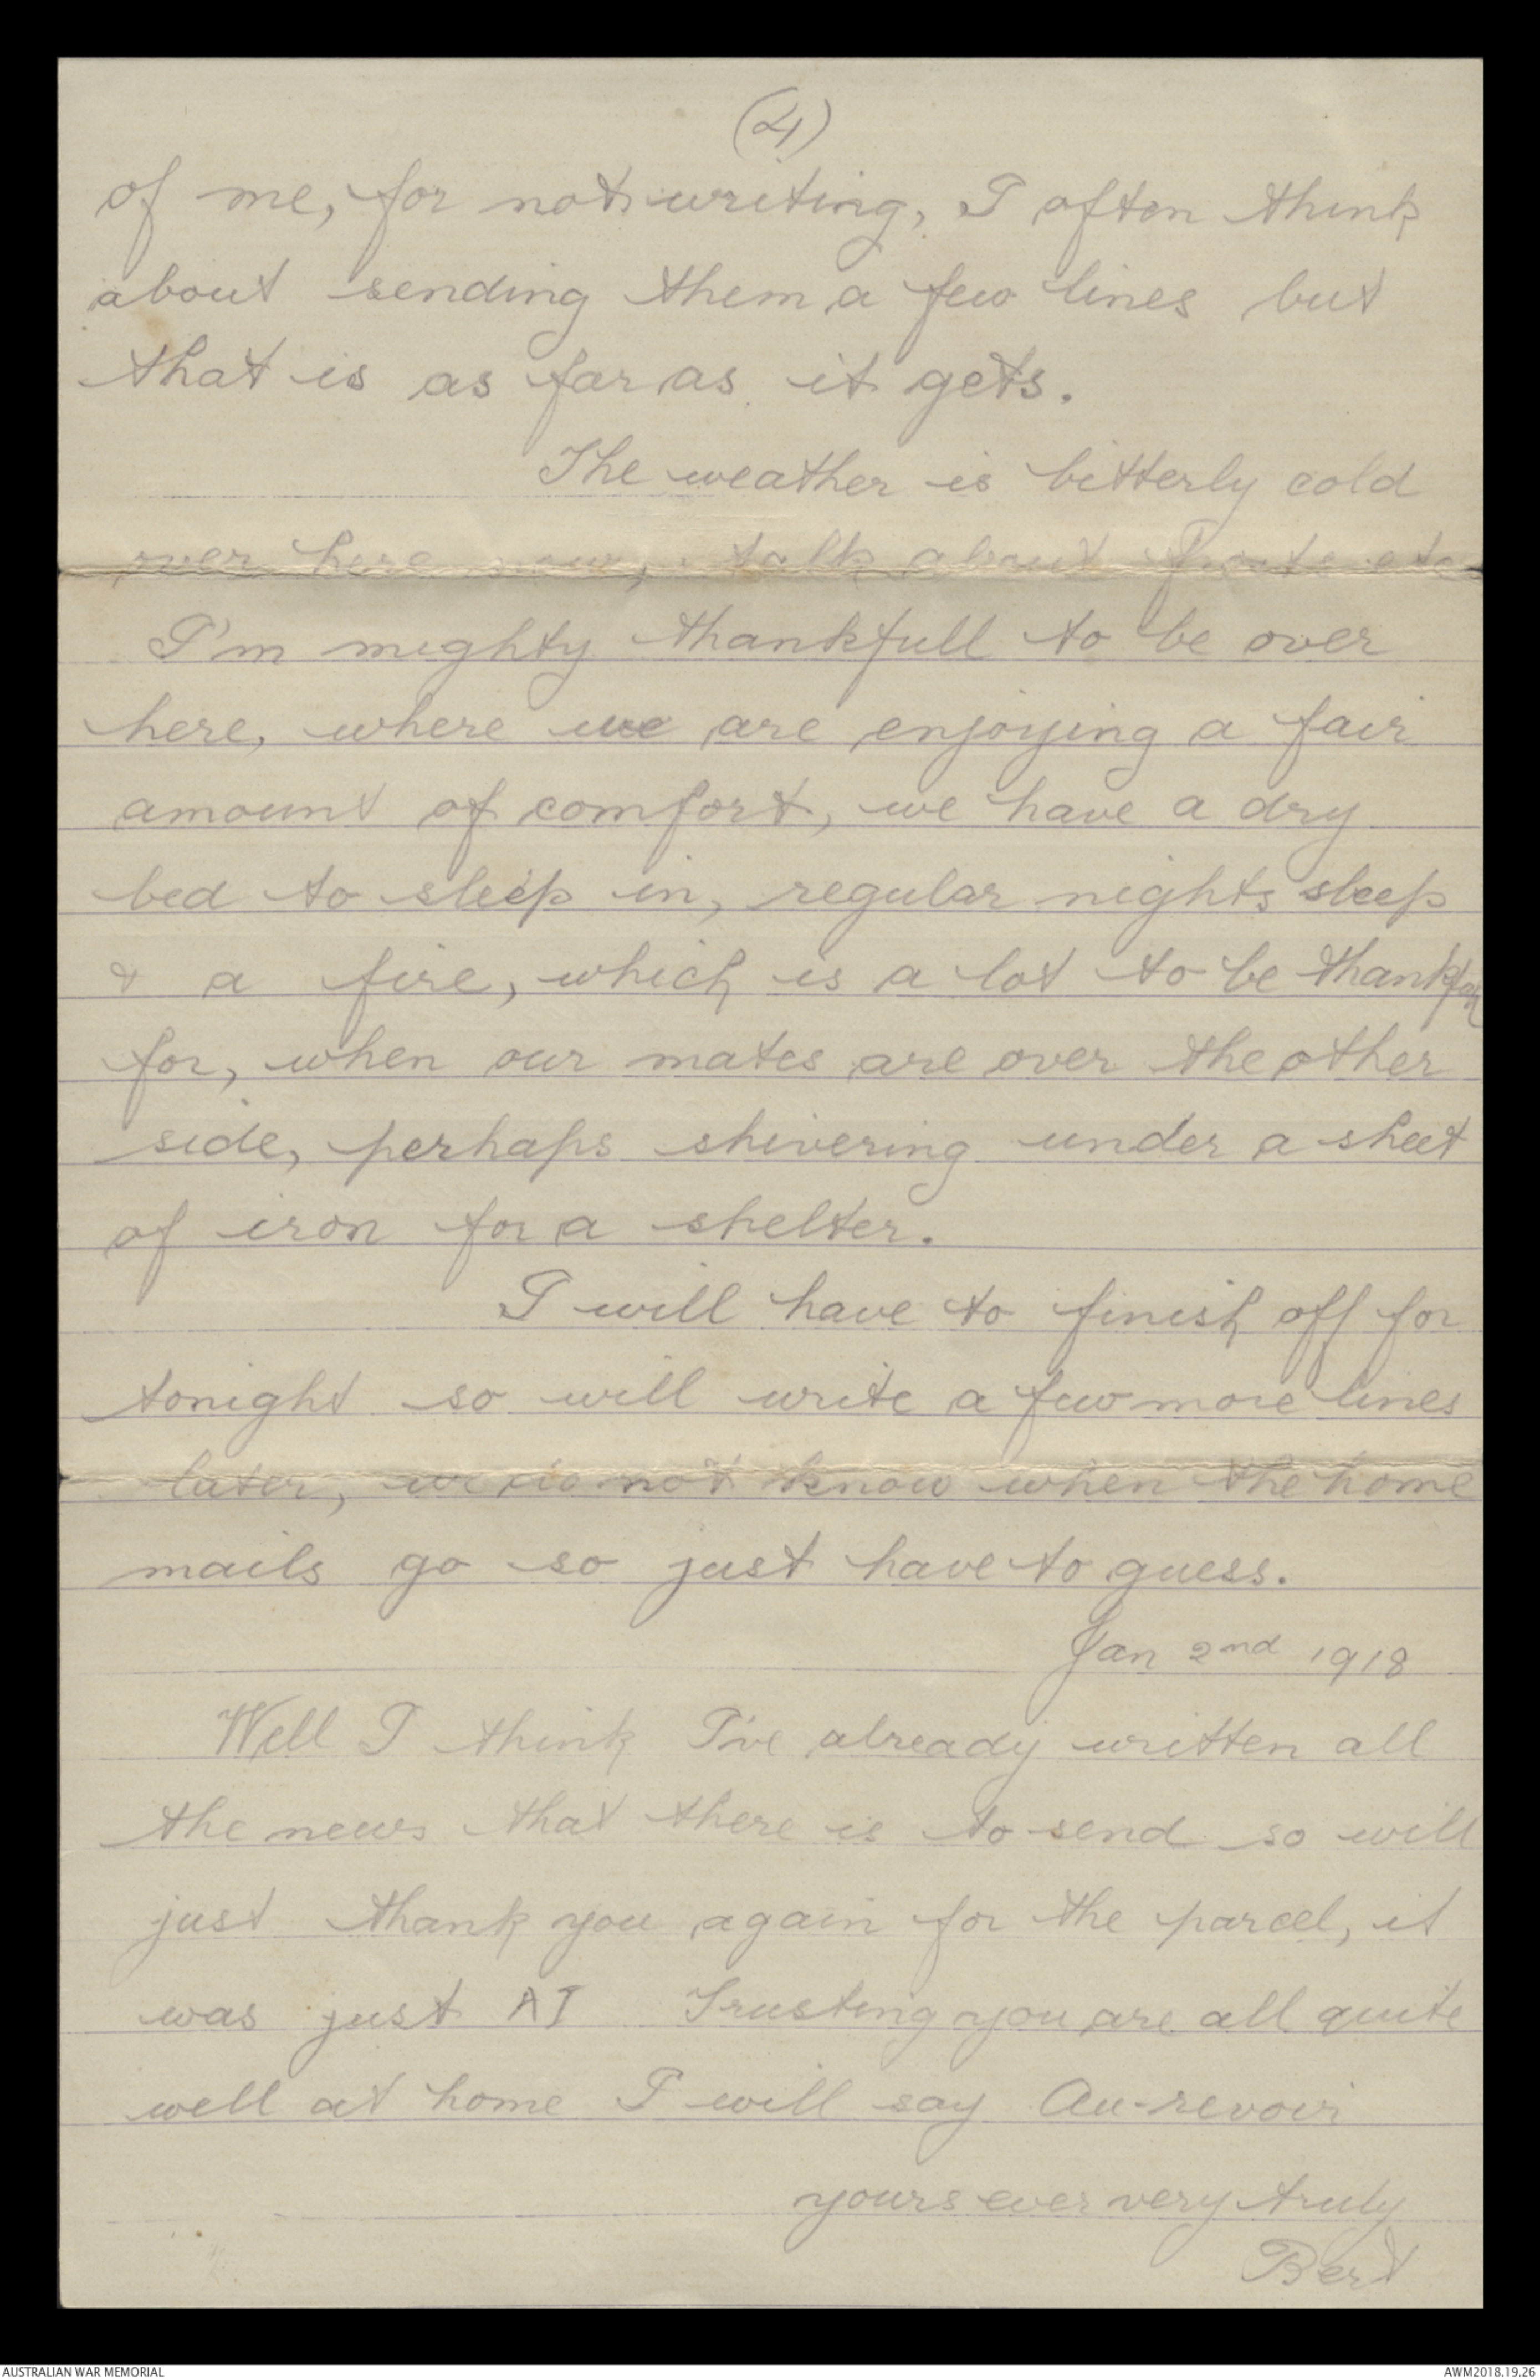 (4)
of me, for not writing, I often think
about sending them a few lines but
that is as far as it gets.
The weather is bitterly cold
over here now, talk about frosts etc
I'm mighty thankfull to be over
here, where we are enjoying a fair
amount of comfort, we have a dry
bed to sleep in, regular nights sleep
& a fire, which is a lot to be thankful
for, when our mates are over the other
side, perhaps shivering under a sheet
of iron for a shelter.
I will have to finish off for
tonight so will write a few more lines
later, we do not know when the home
mails go so just have to guess.
Jan 2nd 1918
Well I think I've already written all
the news that there is to send so will
just thank you again for the parcel, it
was just A1 Trusting you are all quite
well at home I will say Au-revoir
yours ever very truly
Bert
AUSTRALIAN WAR MEMORIAL
AWM2018.19.26